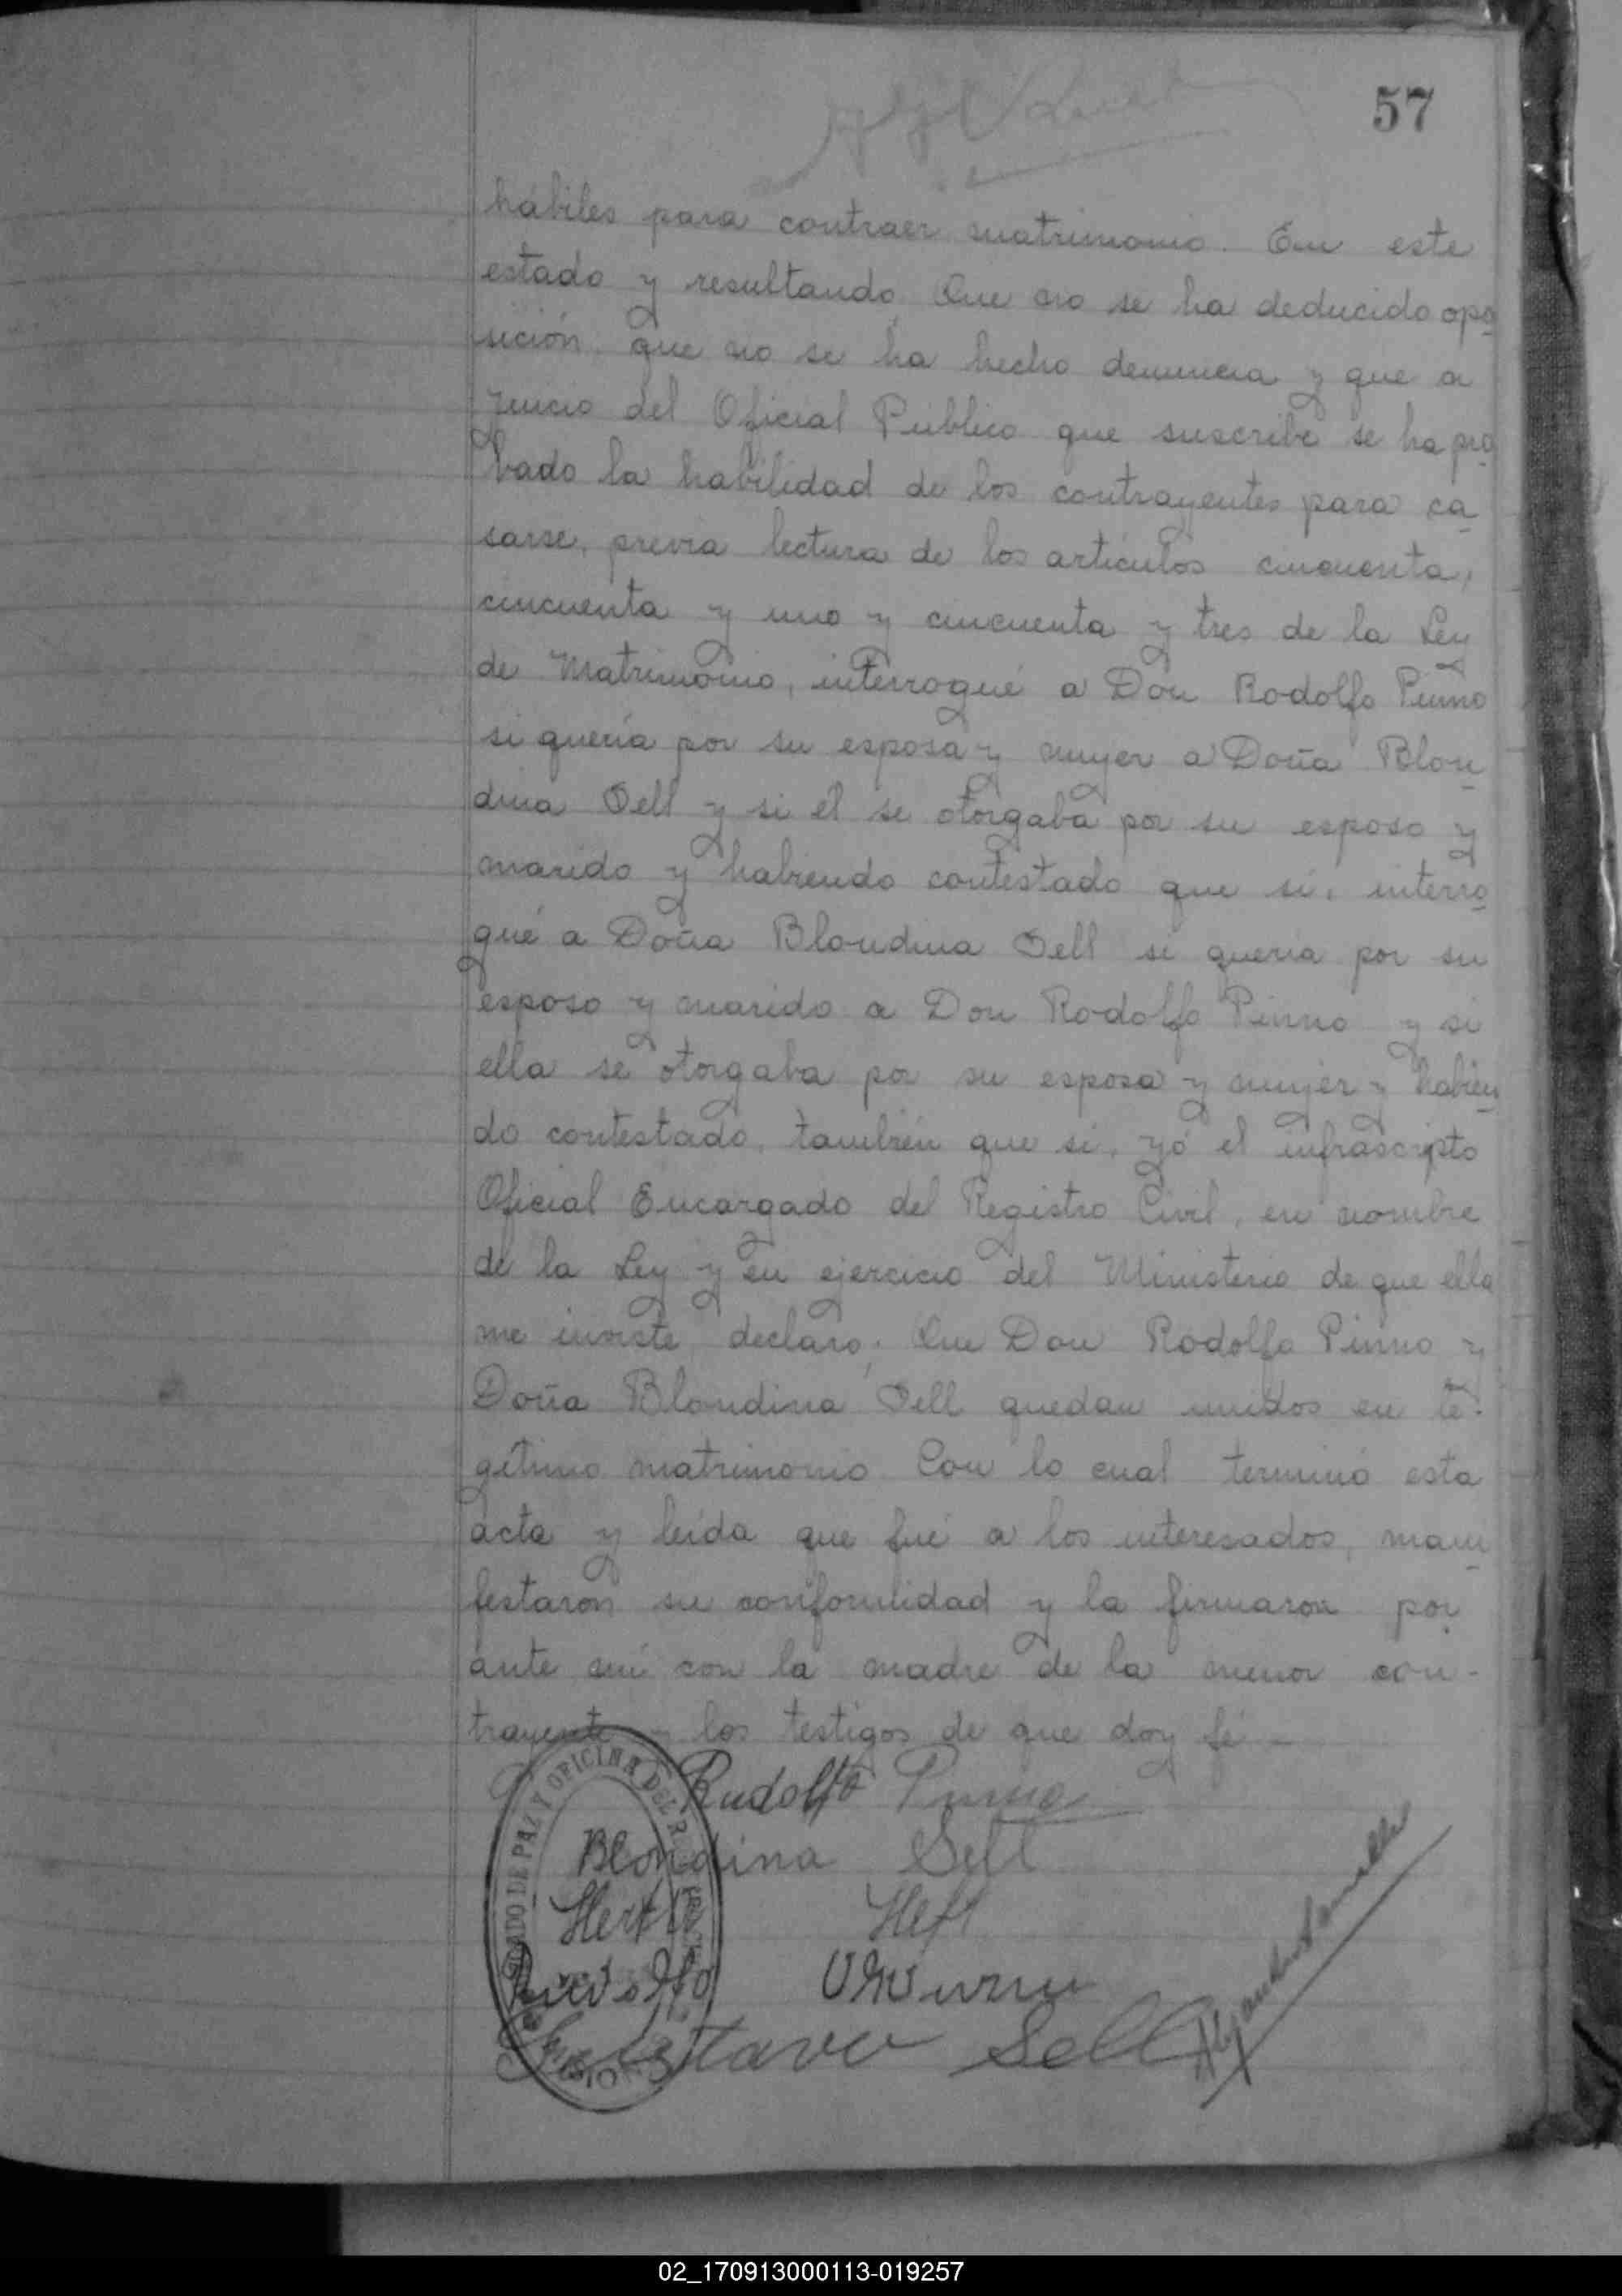 57
hábiles para contraer matrimonio. En este
estado y resultando, Que no se ha deducido opo
sición, que no se ha hecho denuncia y que a
juicio del Oficial Público que suscribe se ha pro
bado la habilidad de los contrayentes para ca
sarse, previa lectura de los artículos cincuenta,
cincuenta y uno y cincuenta y tres de la Ley
de Matrimonio, interrogué a Don Rodolfo Pinno
si quería por su esposa y mujer a Doña Blon
dina Sell y si él se otorgaba por su esposo y
marido y habiendo contestado que sí, interro
gué a Doña Blondina Sell si quería por su
esposo y marido a Don Rodolfo Pinno y si
ella se otorgaba por su esposa y mujer y habien
do contestado, también que si, yó el infrascripto
Oficial Encargado del Registro Civil, en nombre
de la Ley y en ejercicio del Ministerio de que ella
me inviste, declaro; Que Don Rodolfo Pinno y
Doña Blondina Sell quedan unidos en le-
gítimo matrimonio. Con lo cual terminó esta
acta y leída que fué a los interesados, mani
festaron su conformidad y la firmaron por
ante mí con la madre de la menor con-
trayente y los testigos de que doy fé -
Rudolfo Pinno
Blondina Sell
Gustavo Sell
GADO DE PAZ Y OFICINA DEL
02_170913000113-019257